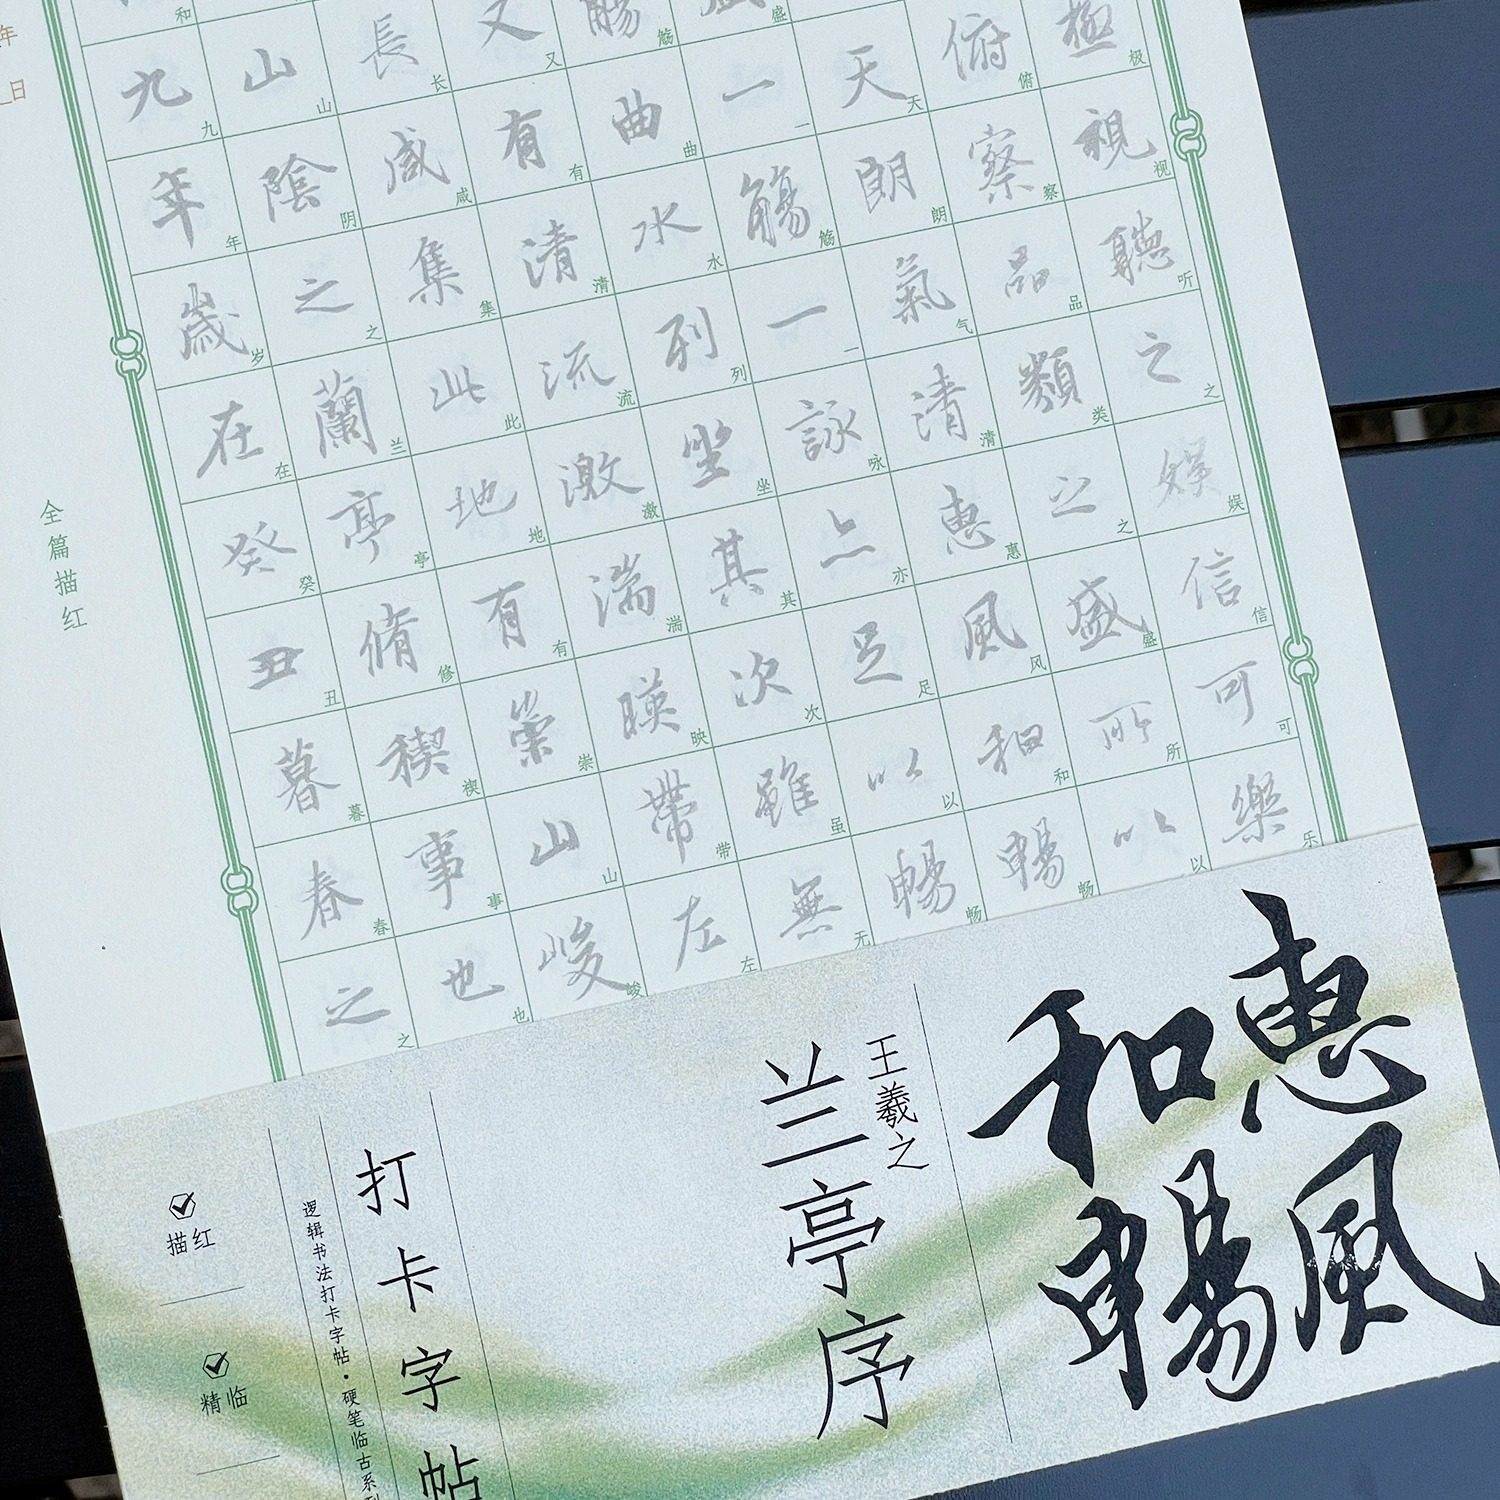 年
日
全篇描红
九年歲在癸丑暮春之
和九年岁在癸丑暮春之
山陰之蘭亭脩稧事也
山阴之兰亭修禊事也
長咸集此地有崇山峻
长咸集此地有崇山峻
又有清流激湍暎帶左
又有清流激湍映带左
觴曲水列坐其次雖無
觞曲水列坐其次虽无
盛一觴一詠亦足以暢
盛一觞一咏亦足以畅
天朗氣清惠風和暢
天朗气清惠风和畅
俯察品類之盛所以
俯察品类之盛所以
極視聽之娛信可樂
极视听之娱信可乐
惠風
和暢
王羲之
兰亭序
打卡字帖
逻辑书法打卡字帖·硬笔临古系列
描红
精临